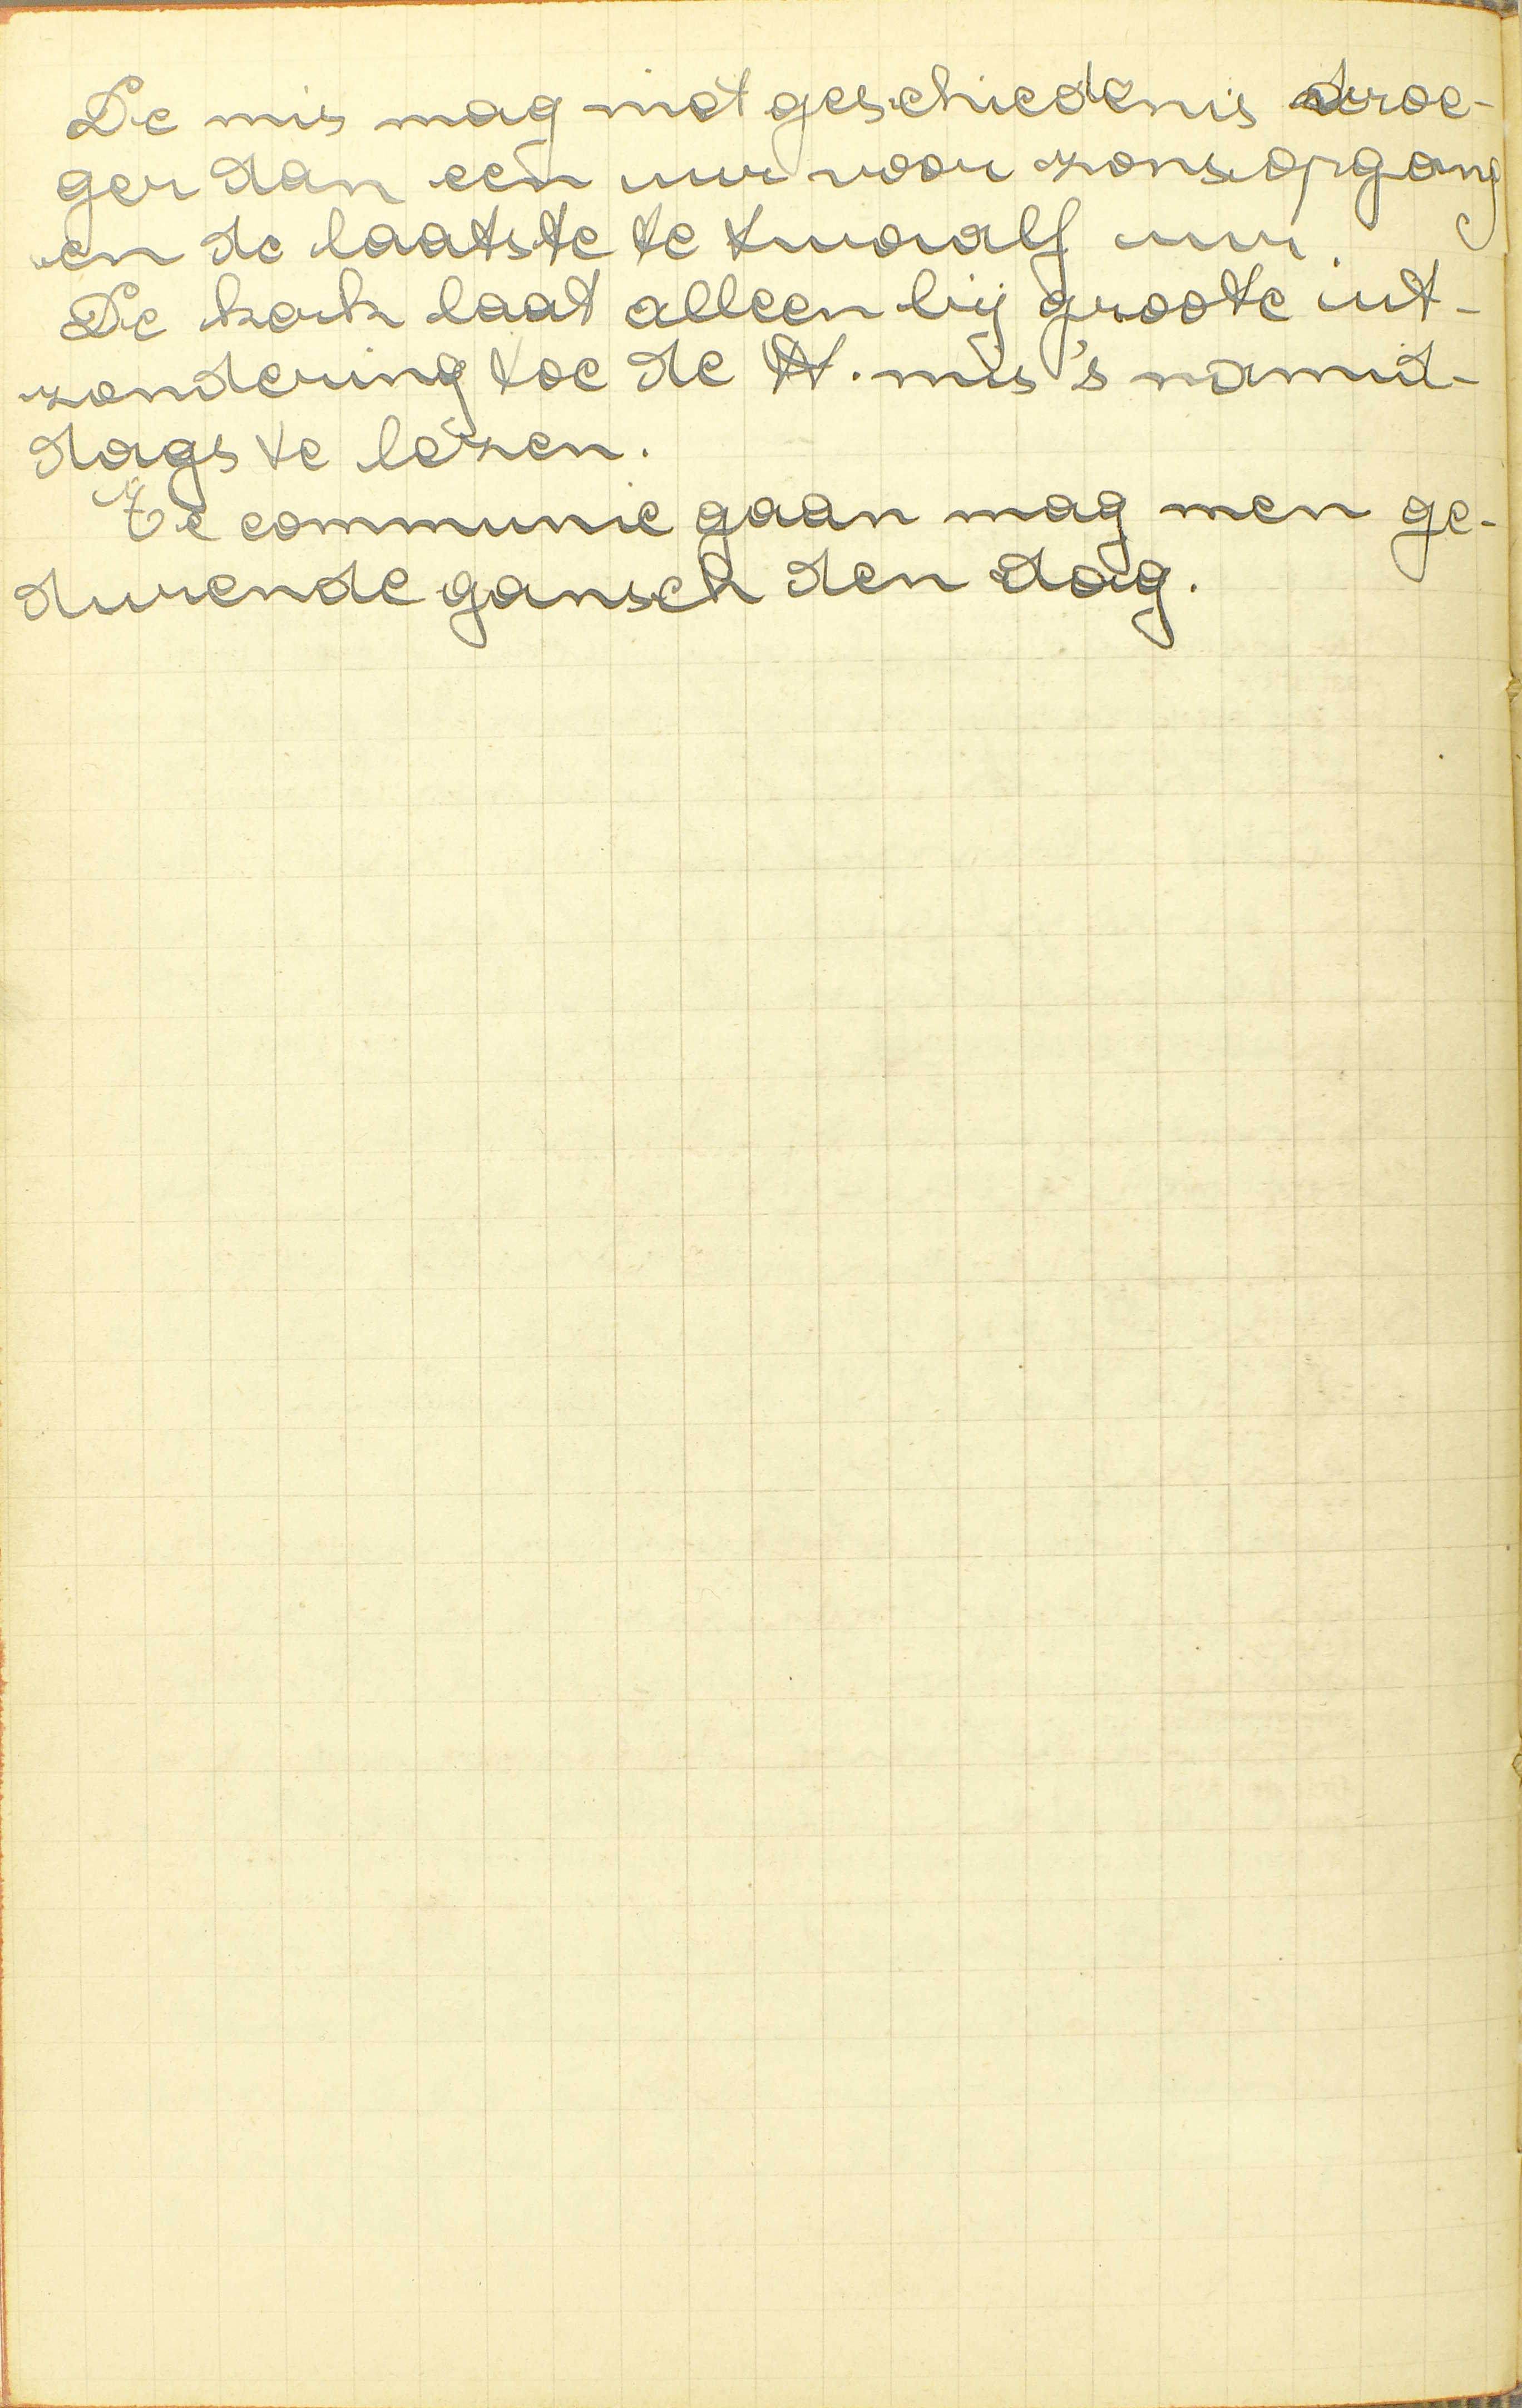 De mis mag niet geschiedenis vroe-
ger dan een uur voor zonsopgang
en de laatste te twaalf uur.
De kerk laat alleen bij groote uit-
zondering toe de H. mis 's namid-
dags te lezen.
Te communie gaan mag men ge-
durende gansch den dag.